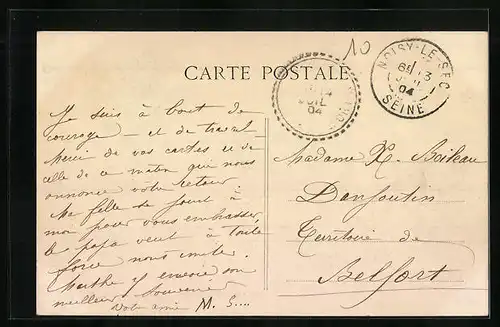 10
NOISY-LE-SEC
13
04
SEINE
CARTE POSTALE
JUIL
04
Je suis à bout de
courage - et de travail
merci de vos cartes et de
celle de ce matin qui nous
annonce votre retour.
Ma fille se joint à
moi pour vous embrasser,
le papa veut à toute
force nous imiter.
Marthe y envoie son
meilleur souvenir
Votre amie M. S....
Madame X. Boileau
Danjoutin
Territoire de
Belfort